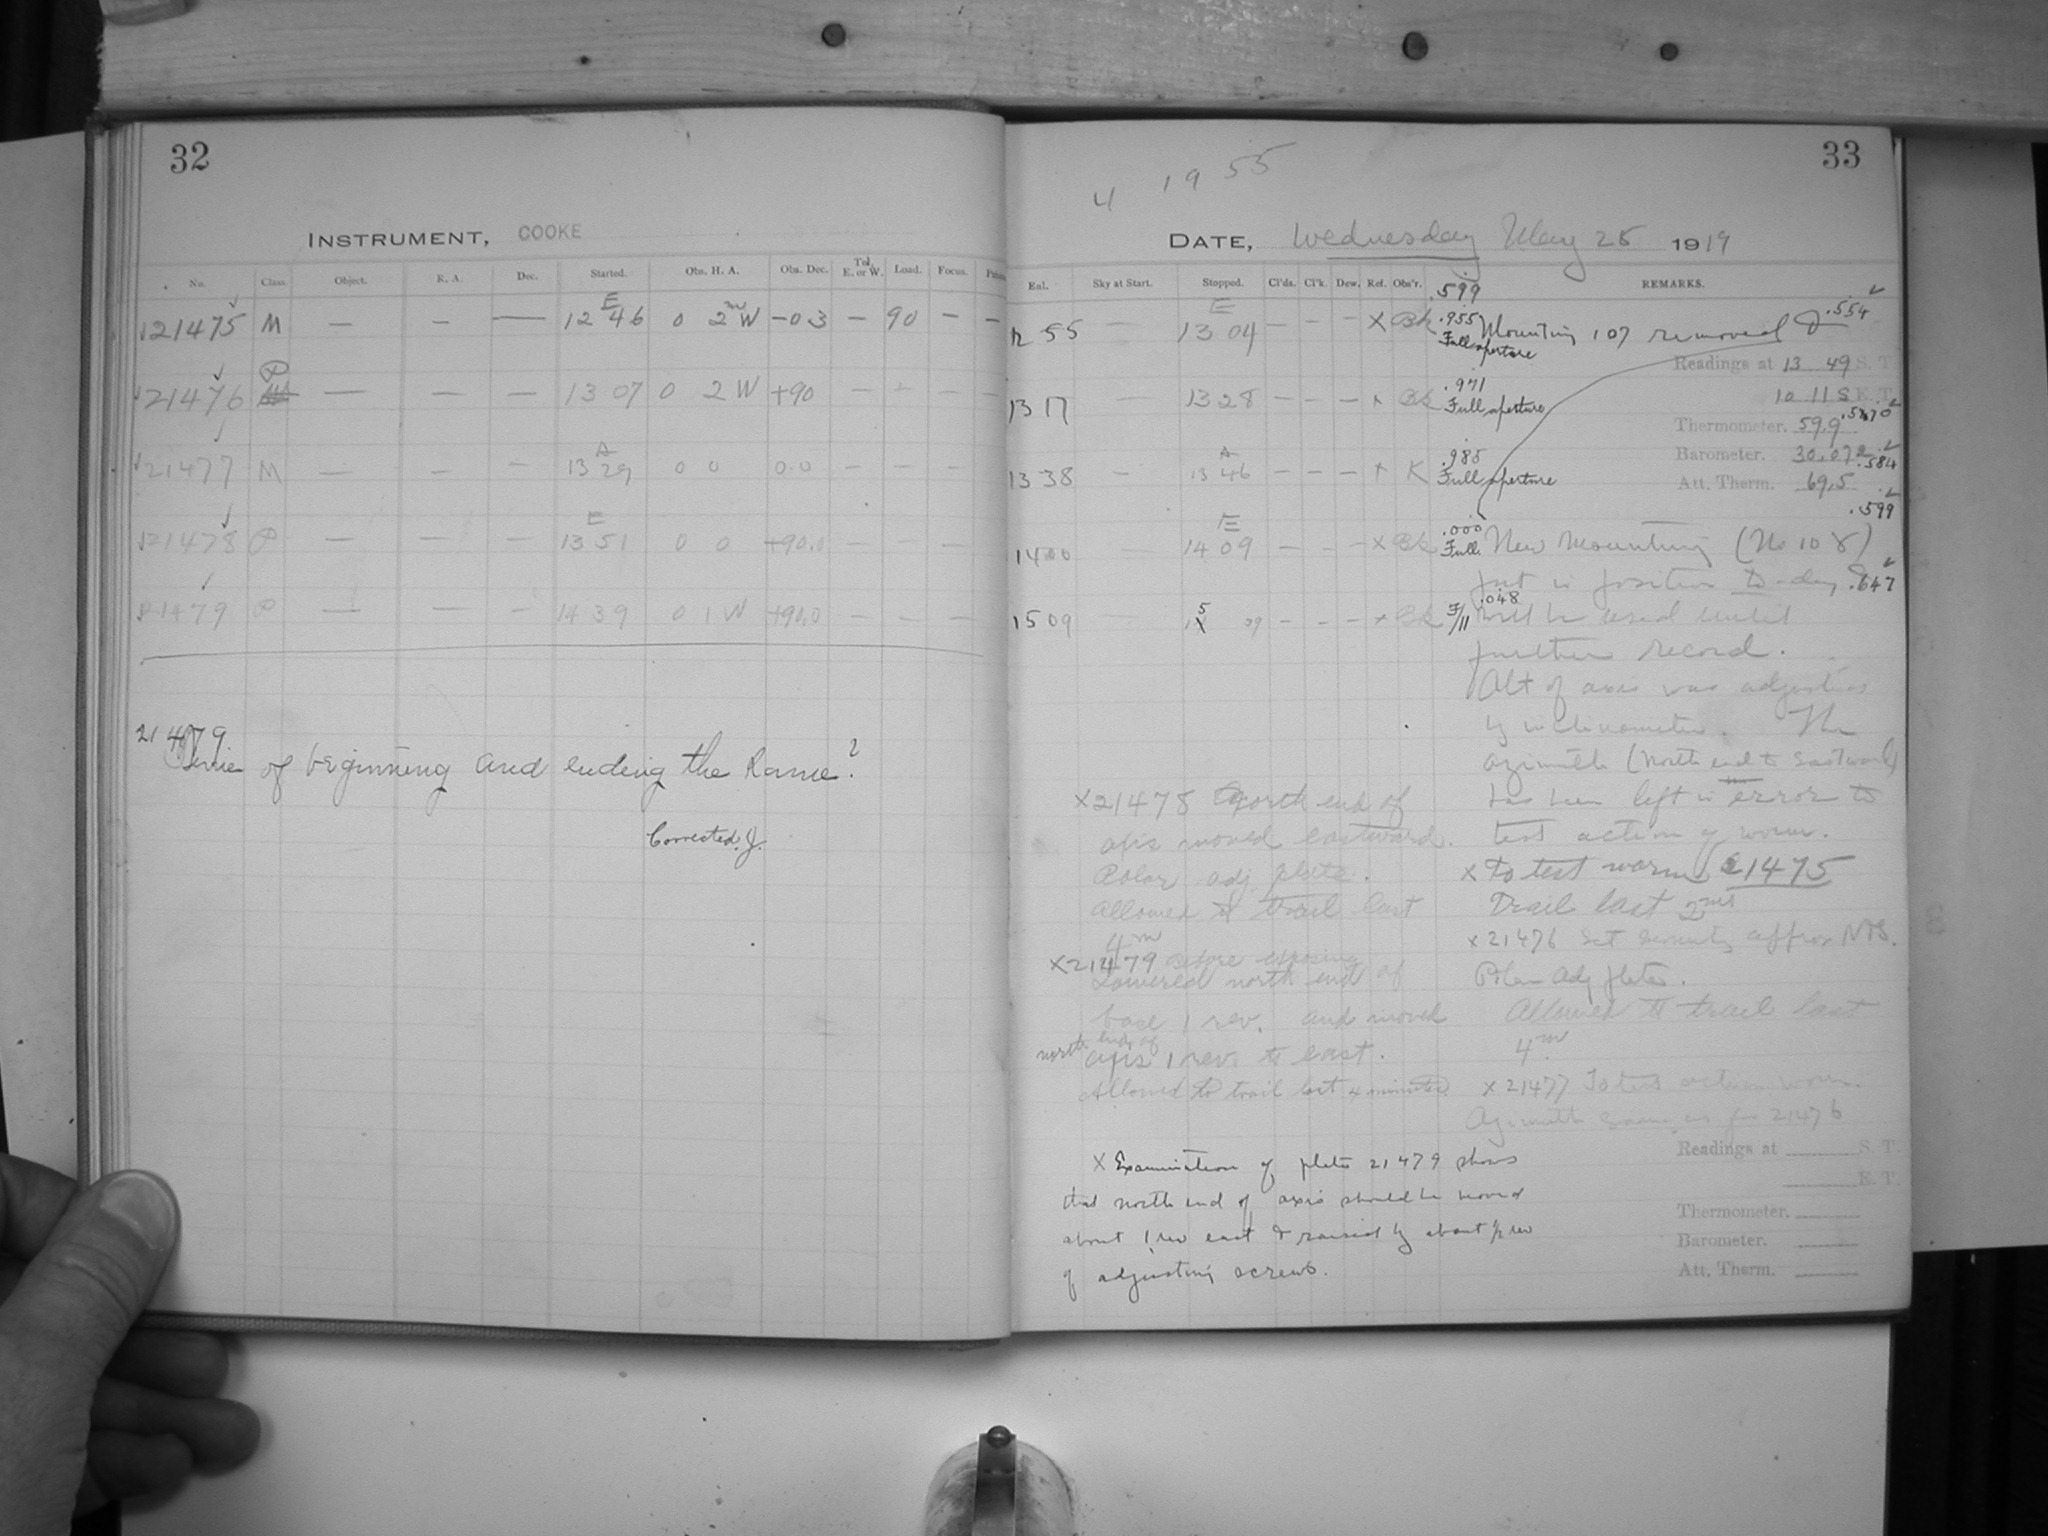 32
INSTRUMENT, COOKE
No. Class. Object. R. A. Dec. Started. Obs. H. A. Obs. Dec. Tel. E. or W. Load. Focus.
21475 M — — — E 12 46 0 2m W -03 — 90 — —
21476 P — — — 13 07 0 2 W +90 — — — —
21477 M — — — A 13 29 0 0 0.0 — — —
21478 P — — — E 13 51 0 0 +90.0 — — —
21479 P — — — 14 39 0 1 W +90.0 — — —
21479
Time of beginning and ending the same?
Corrected. J.
33
4 1955
DATE, Wednesday May 28 1919
Exl. Sky at Start. Stopped. Cl'ds. Cl'k. Dew. Ref. Obs'r. REMARKS.
.599
12 55 — E 13 04 — — — X Bk .955 Mounting 107 removed .554
Full aperture
Readings at 13 49 S. T.
13 17 — 13 28 — — — x Bk .971
Full aperture
10 11 S E. T.
Thermometer. 59.9
13 38 — A 13 46 — — — x K .985
Full aperture
Barometer. 30.072 .584
Att. Therm. 69.5
.599
14 00 — E 14 09 — — — x Bk .000
Full. New mounting (No 108)
put in position to-day .647
.048
15 09 — 15 09 — — — x Bk F/11 will be used until
further record.
Alt of axis was adjusted
by inclinometer. The
azimuth (North end to Eastward)
has been left in error to
test action of worm.
x To test worm 21475
Trail last 2ms
x 21476 Set
approx
Polar Adj plate.
Allowed to trail last
4m
x 21477 To test action worm.
Azimuth same as for 21476
x 21478 North end of
axis moved eastward.
Polar adj. plate.
Allowed to trail last
4m
x 21479 Before exposing
Lowered north end of
base 1 rev. and moved
north end of
axis 1 rev. to east.
Allowed to trail last 4 minutes
X Examination of plate 21479 shows
that north end of axis should be moved
about 1 rev east & raised by about ½ rev
of adjusting screws.
Readings at S. T.
E. T.
Thermometer.
Barometer.
Att. Therm.